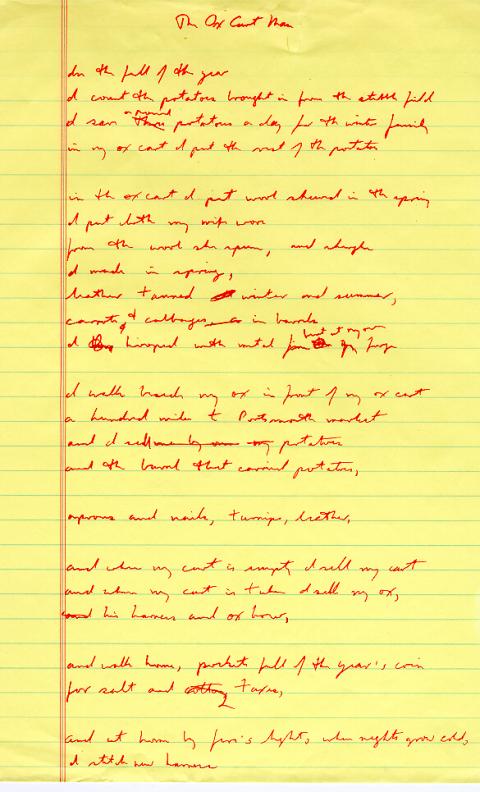 The Ox Cart Man
In the fall of the year
I count the potatoes brought in from the field
I save potatoes a day for the winter family
in my ox cart I put the rest of the potatoes
in the ox cart I put wool sheared in the spring
I put cloth my wife wove
from the wool she spun, and shingles
I made in spring,
leather tanned winter and summer,
carrots & cabbages in barrels
I hooped with metal from my forge
I walk beside my ox in front of my ox cart
a hundred miles to Portsmouth market
and I sell my potatoes
and the barrel that carried potatoes,
aprons and nails, turnips, leather,
and when my cart is empty I sell my cart
and when my cart is taken I sell my ox,
and his harness and ox bow,
and walk home, pockets full of the year's coin
for salt and taxes,
and at home by fire's light, when nights grow cold,
I stitch new harness